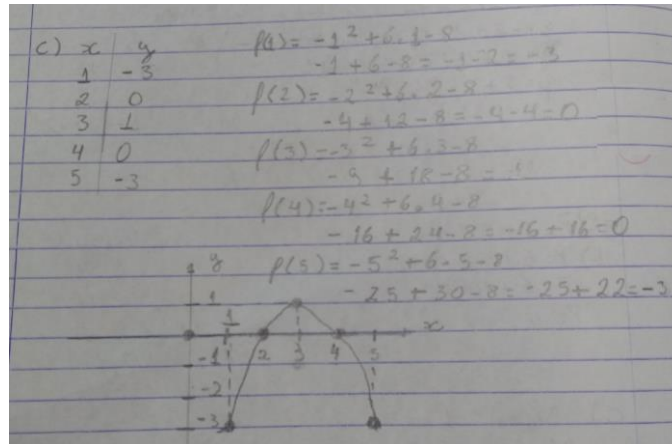 c) x y
1 -3
2 0
3 1
4 0
5 -3
f(1) = -1² + 6.1-8
-1+6-8 = -1-2 = -3
f(2) = -2² + 6.2-8
-4+12-8 = -4-4-0
f(3) = -3² + 6.3-8
-9+18-8 = 1
f(4) = -4² + 6.4-8
-16+24-8 = -16+16 = 0
f(5) = -5² + 6.5-8
-25+30-8 = -25+22 = -3
y
1
1 x
2 3 4 5
-1
-2
-3